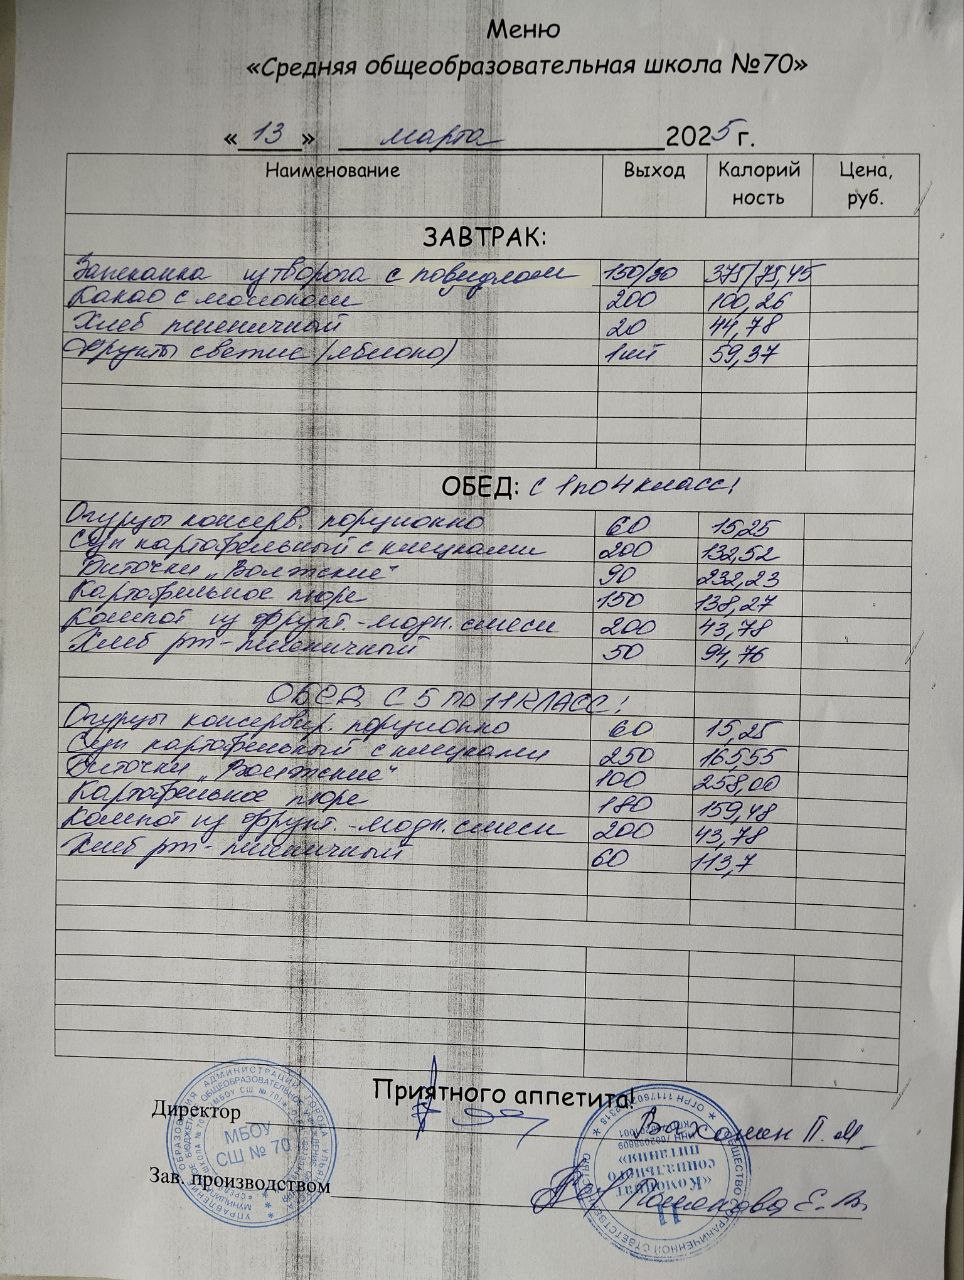 Меню
«Средняя общеобразовательная школа №70»
«13» марта 2025 г.
Наименование Выход Калорийность Цена, руб.
ЗАВТРАК:
Запеканка из творога с повидлом 150/30 375/75,45
Какао с молоком 200 100,26
Хлеб пшеничный 20 44,78
Фрукты свежие (яблоко) 1шт 59,37
ОБЕД: с 1 по 4 класс!
Огурцы консерв. порционно 60 15,25
Суп картофельный с клецками 200 132,52
Биточки „Волжские" 90 232,23
Картофельное пюре 150 138,27
Компот из фрукт.-ягодн. смеси 200 43,78
Хлеб рж-пшеничный 50 94,76
ОБЕД С 5 ПО 11 КЛАСС!
Огурцы консервир. порционно 60 15,25
Суп картофельный с клецками 250 165,55
Биточки „Волжские" 100 258,00
Картофельное пюре 180 159,48
Компот из фрукт.-ягодн. смеси 200 43,78
Хлеб рж-пшеничный 60 113,7
Приятного аппетита!
Директор П.М.
МБОУ
СШ № 70
«Комбинат
социального
питания»
Зав. производством Е.В.